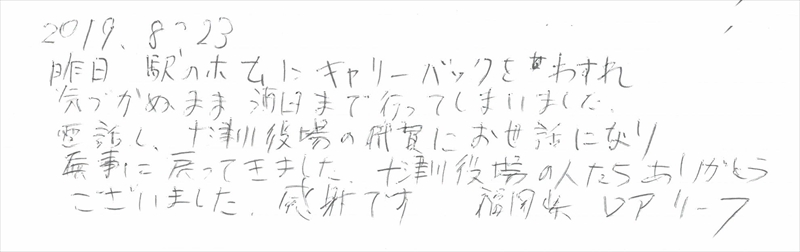 2019.8.23
昨日 駅のホームにキャリーバックをわすれ
気づかぬまま 酒田まで行ってしまいました。
電話し、大津川役場の職員にお世話になり
無事に戻ってきました。大津川役場の人たちありがとう
ございました。感謝です 福岡県